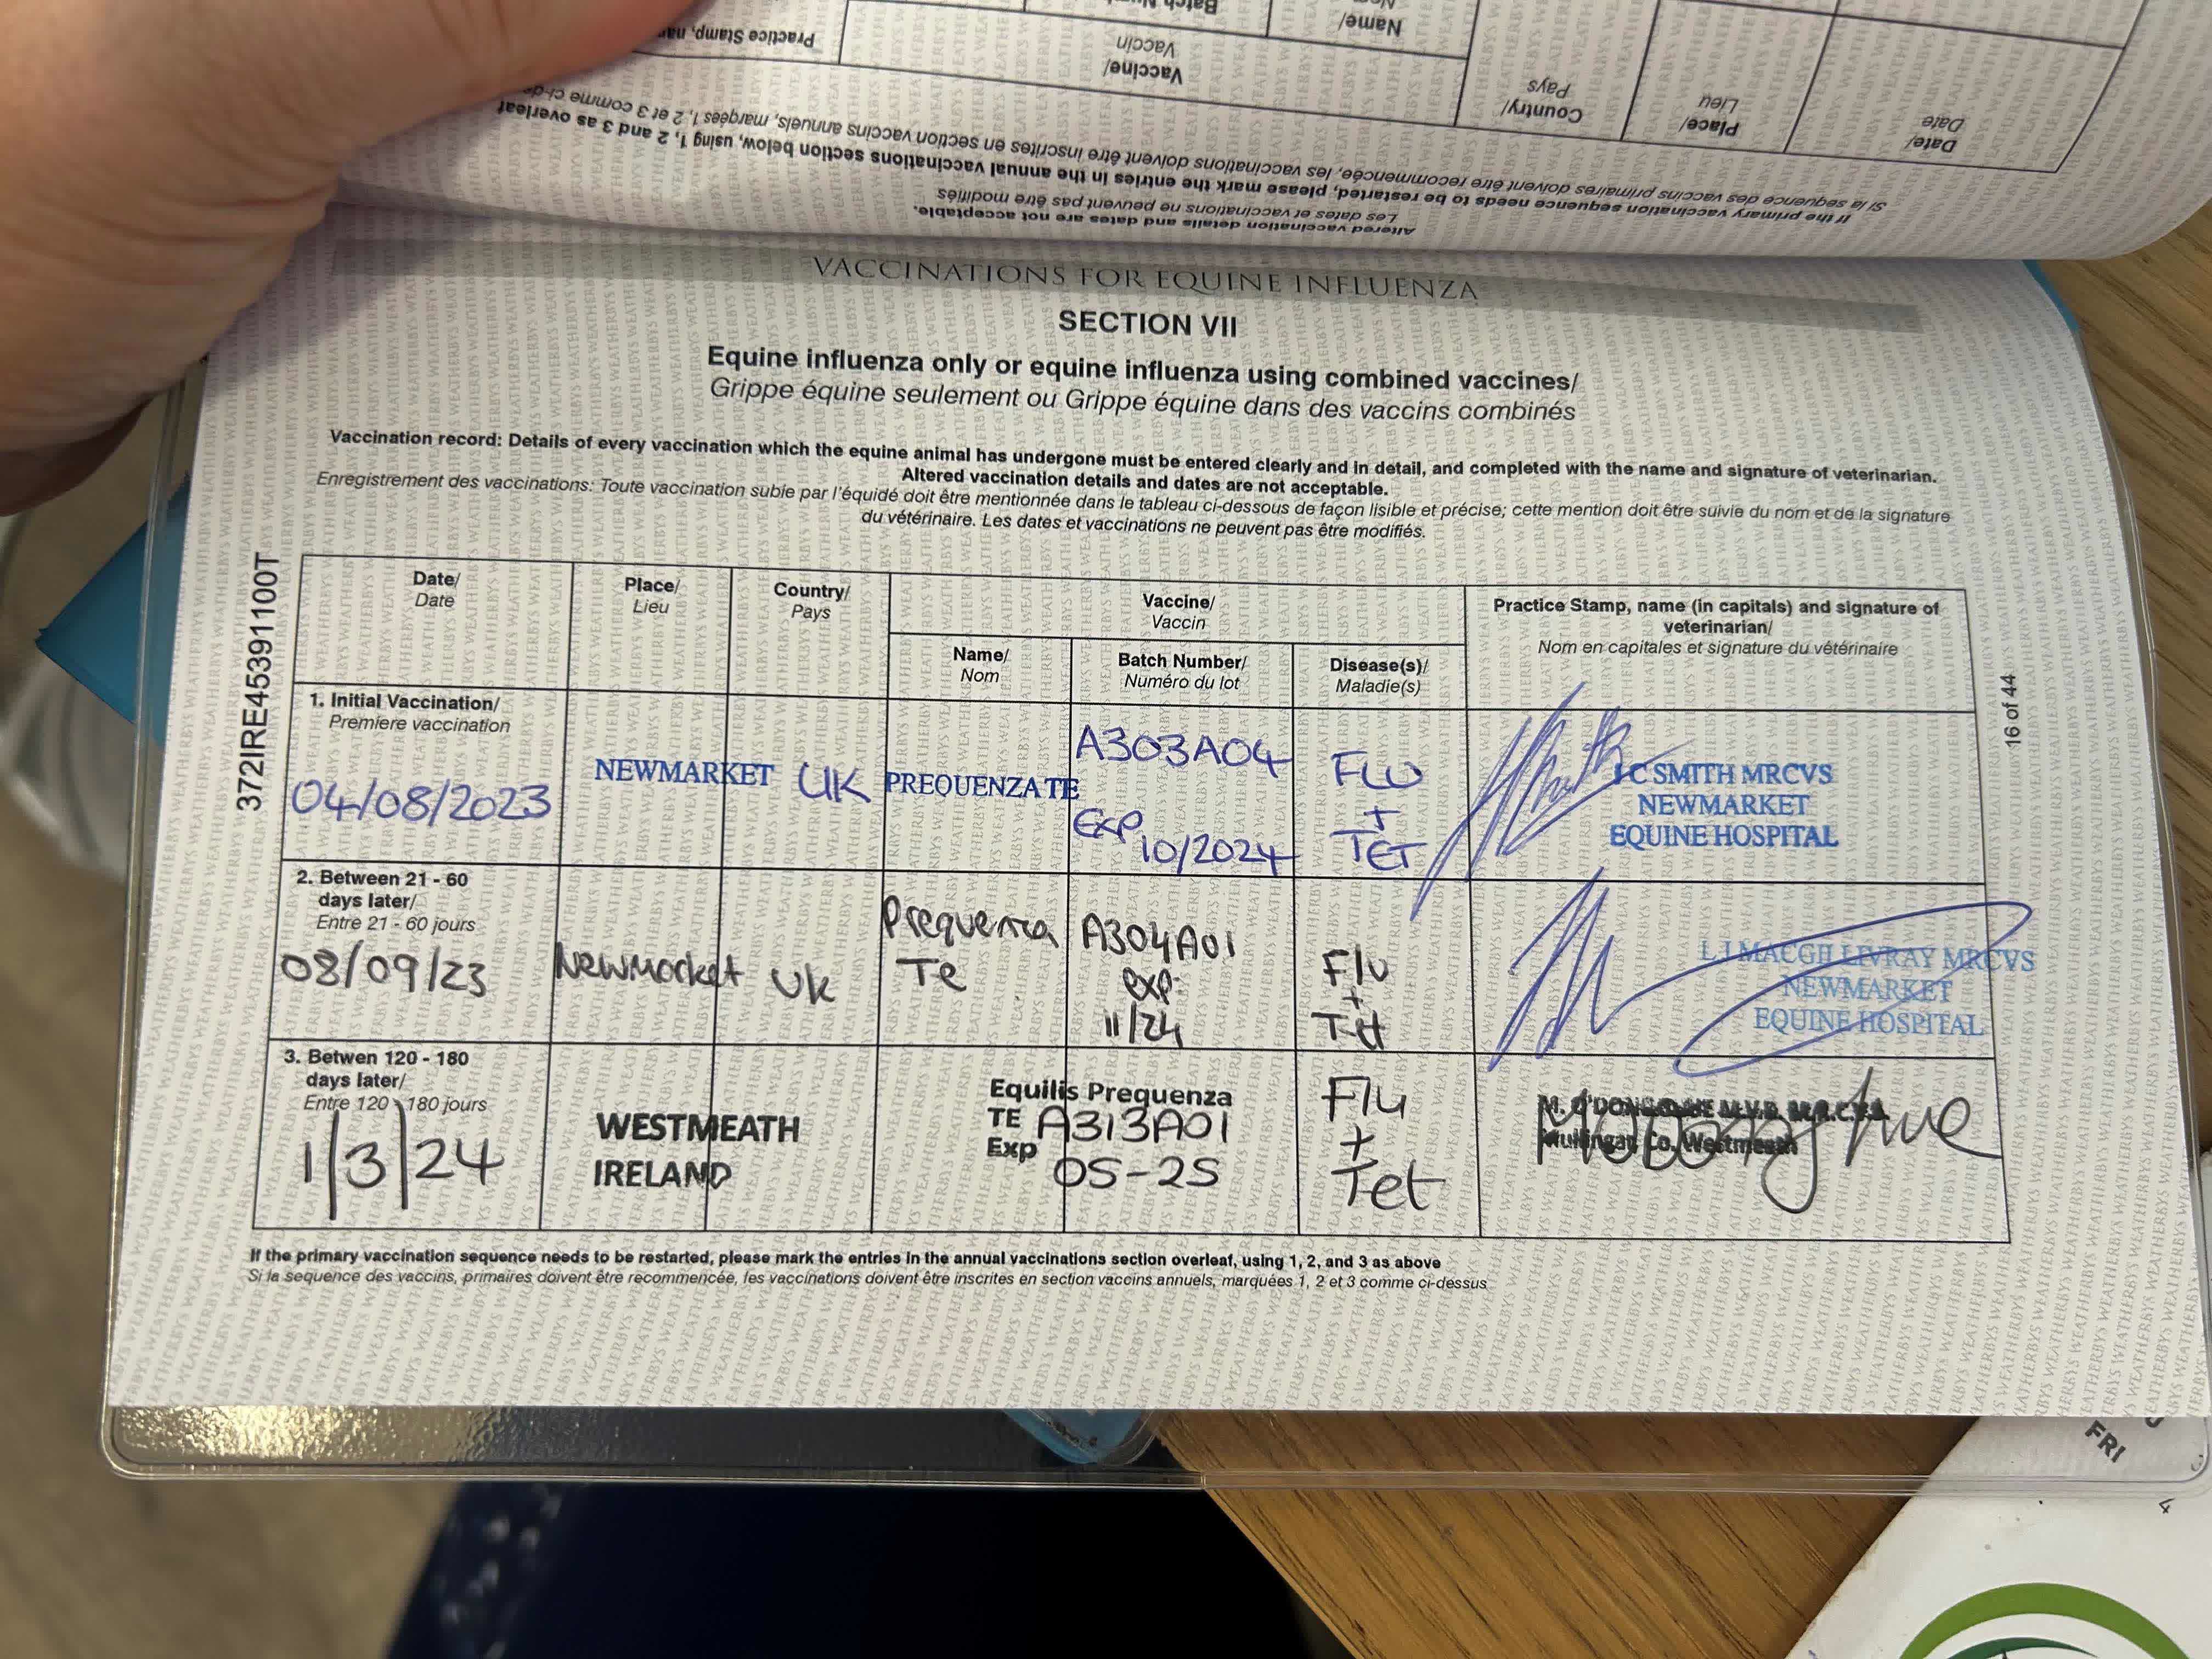 Batch Nu
Name/
Practice Stamp, nam
Vaccine/
Vaccin
Country/
Pays
Place/
Lieu
Date/
Date
Si la sequence des vaccins primaires doivent être recommencée, les vaccinations doivent être inscrites en section vaccins annuels, marquées 1, 2 et 3 comme ci-de
If the primary vaccination sequence needs to be restarted, please mark the entries in the annual vaccinations section below, using 1, 2 and 3 as overleaf
Les dates et vaccinations ne peuvent pas être modifiés
Altered vaccination details and dates are not acceptable.
VACCINATIONS FOR EQUINE INFLUENZA
SECTION VII
Equine influenza only or equine influenza using combined vaccines/
Grippe équine seulement ou Grippe équine dans des vaccins combinés
Vaccination record: Details of every vaccination which the equine animal has undergone must be entered clearly and in detail, and completed with the name and signature of veterinarian.
Altered vaccination details and dates are not acceptable.
Enregistrement des vaccinations: Toute vaccination subie par l'équidé doit être mentionnée dans le tableau ci-dessous de façon lisible et précise; cette mention doit être suivie du nom et de la signature
du vétérinaire. Les dates et vaccinations ne peuvent pas être modifiés.
372IRE45391100T
16 of 44
Date/
Date
Place/
Lieu
Country/
Pays
Vaccine/
Vaccin
Name/
Nom
Batch Number/
Numéro du lot
Disease(s)/
Maladie(s)
Practice Stamp, name (in capitals) and signature of
veterinarian/
Nom en capitales et signature du vétérinaire
1. Initial Vaccination/
Premiere vaccination
04/08/2023
NEWMARKET
UK
PREQUENZA TE
A303A04
Exp
10/2024
FLU
+
TET
J C SMITH MRCVS
NEWMARKET
EQUINE HOSPITAL
2. Between 21 - 60
days later/
Entre 21 - 60 jours
08/09/23
Newmarket
UK
Prequenza
Te
A304A01
exp:
11/24
Flu
+
Tet
L J MACGILLIVRAY MRCVS
NEWMARKET
EQUINE HOSPITAL
3. Betwen 120 - 180
days later/
Entre 120 - 180 jours
1/3/24
WESTMEATH
IRELAND
Equilis Prequenza
TE A313A01
Exp 05-25
Flu
+
Tet
M. O'DONOGHUE M.V.B. M.R.C.V.S
Mullingar, Co. Westmeath
If the primary vaccination sequence needs to be restarted, please mark the entries in the annual vaccinations section overleaf, using 1, 2, and 3 as above
Si la sequence des vaccins, primaires doivent être recommencée, les vaccinations doivent être inscrites en section vaccins annuels, marquées 1, 2 et 3 comme ci-dessus
FRI
4